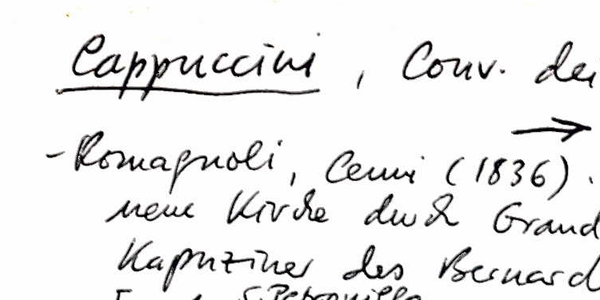 Cappuccini, Conv. dei
→
- Romagnoli, Cenni (1836).
neue Kirche durch Grand
Kapuziner des Bernard
S. Petronilla